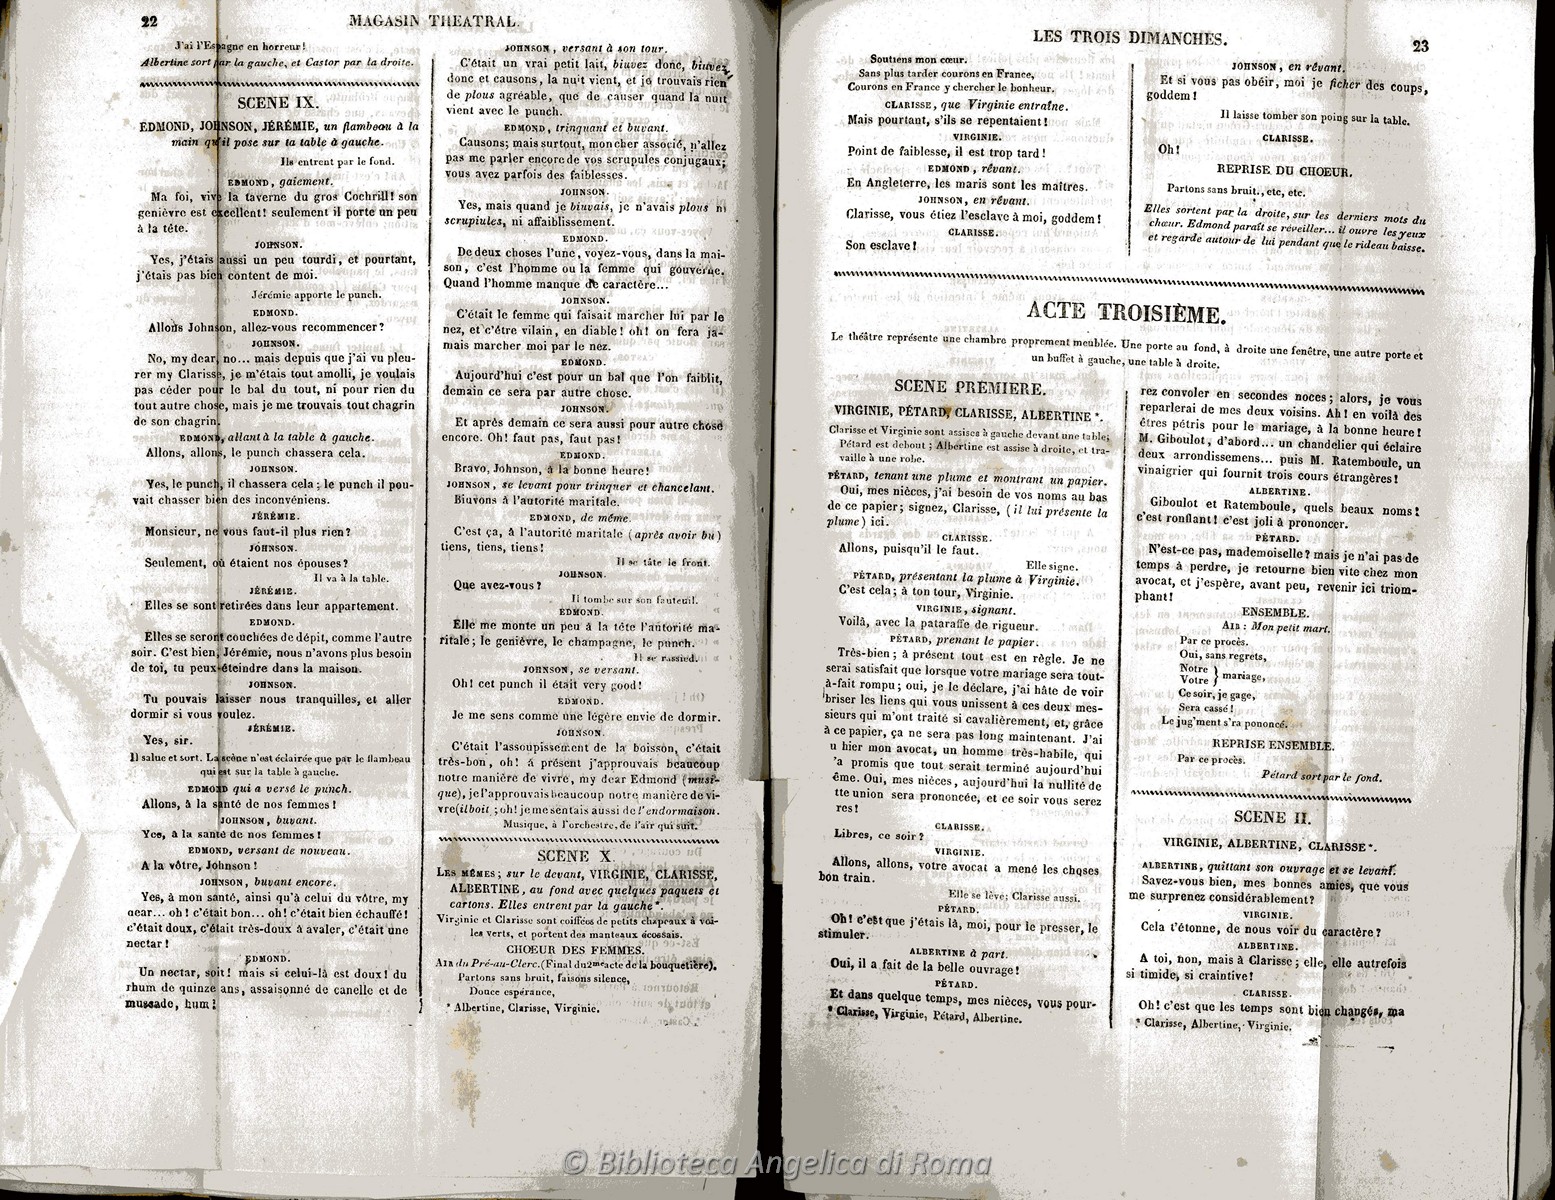 22
MAGASIN THEATRAL.
J'ai l'Espagne en horreur!
Albertine sort par la gauche, et Castor par la droite.
SCENE IX.
EDMOND, JOHNSON, JÉRÉMIE, un flambeau à la
main qu'il pose sur la table à gauche.
Ils entrent par le fond.
EDMOND, gaiement.
Ma foi, vive la taverne du gros Cochrill! son
genièvre est excellent! seulement il porte un peu
à la tête.
JOHNSON.
Yes, j'étais aussi un peu tourdi, et pourtant,
j'étais pas bien content de moi.
Jérémie apporte le punch.
EDMOND.
Allons Johnson, allez-vous recommencer?
JOHNSON.
No, my dear, no... mais depuis que j'ai vu pleu-
rer my Clarisse, je m'étais tout amolli, je voulais
pas céder pour le bal du tout, ni pour rien du
tout autre chose, mais je me trouvais tout chagrin
de son chagrin.
EDMOND, allant à la table à gauche.
Allons, allons, le punch chassera cela.
JOHNSON.
Yes, le punch, il chassera cela; le punch il pou-
vait chasser bien des inconvéniens.
JÉRÉMIE.
Monsieur, ne vous faut-il plus rien?
JOHNSON.
Seulement, où étaient nos épouses?
Il va à la table.
JÉRÉMIE.
Elles se sont retirées dans leur appartement.
EDMOND.
Elles se seront couchées de dépit, comme l'autre
soir. C'est bien, Jérémie, nous n'avons plus besoin
de toi, tu peux éteindre dans la maison.
JOHNSON.
Tu pouvais laisser nous tranquilles, et aller
dormir si vous voulez.
JÉRÉMIE.
Yes, sir.
Il salue et sort. La scène n'est éclairée que par le flambeau
qui est sur la table à gauche.
EDMOND qui a versé le punch.
Allons, à la santé de nos femmes!
JOHNSON, buvant.
Yes, à la santé de nos femmes!
EDMOND, versant de nouveau.
A la vôtre, Johnson!
JOHNSON, buvant encore.
Yes, à mon santé, ainsi qu'à celui du vôtre, my
dear... oh! c'était bon... oh! c'était bien échauffé!
c'était doux, c'était très-doux à avaler, c'était une
nectar!
EDMOND.
Un nectar, soit! mais si celui-là est doux! du
rhum de quinze ans, assaisonné de canelle et de
muscade, hum!
JOHNSON, versant à son tour.
C'était un vrai petit lait, biuvez donc, biuvez
donc et causons, la nuit vient, et je trouvais rien
de plous agréable, que de causer quand la nuit
vient avec le punch.
EDMOND, trinquant et buvant.
Causons; mais surtout, mon cher associé, n'allez
pas me parler encore de vos scrupules conjugaux;
vous avez parfois des faiblesses.
JOHNSON.
Yes, mais quand je biuvais, je n'avais plous ni
scrupiules, ni affaiblissement.
EDMOND.
De deux choses l'une, voyez-vous, dans la mai-
son, c'est l'homme ou la femme qui gouverne.
Quand l'homme manque de caractère...
JOHNSON.
C'était le femme qui faisait marcher lui par le
nez, et c'être vilain, en diable! oh! on fera ja-
mais marcher moi par le nez.
EDMOND.
Aujourd'hui c'est pour un bal que l'on faiblit,
demain ce sera par autre chose.
JOHNSON.
Et après demain ce sera aussi pour autre chose
encore. Oh! faut pas, faut pas!
EDMOND.
Bravo, Johnson, à la bonne heure!
JOHNSON, se levant pour trinquer et chancelant.
Biuvons à l'autorité maritale.
EDMOND, de même.
C'est ça, à l'autorité maritale (après avoir bu)
tiens, tiens, tiens!
Il se tâte le front.
JOHNSON.
Que avez-vous?
Il tombe sur son fauteuil.
EDMOND.
Elle me monte un peu à la tête l'autorité ma-
ritale; le genièvre, le champagne, le punch.
Il se rassied.
JOHNSON, se versant.
Oh! cet punch il était very good!
EDMOND.
Je me sens comme une légère envie de dormir.
JOHNSON.
C'était l'assoupissement de la boisson, c'était
très-bon, oh! à présent j'approuvais beaucoup
notre manière de vivre, my dear Edmond (musi-
que), je l'approuvais beaucoup notre manière de vi-
vre (il boit; oh! je me sentais aussi de l'endormaison.
Musique, à l'orchestre, de l'air qui suit.
SCENE X.
LES MÊMES; sur le devant, VIRGINIE, CLARISSE,
ALBERTINE, au fond avec quelques paquets et
cartons. Elles entrent par la gauche*.
Virginie et Clarisse sont coiffées de petits chapeaux à voi-
les verts, et portent des manteaux écossais.
CHŒUR DES FEMMES.
AIR du Pré-au-Clerc. (Final du 2me acte de la bouquetière).
Partons sans bruit, faisons silence,
Douce espérance,
* Albertine, Clarisse, Virginie.
LES TROIS DIMANCHES.
23
Soutiens mon cœur.
Sans plus tarder courons en France,
Courons en France y chercher le bonheur.
CLARISSE, que Virginie entraîne.
Mais pourtant, s'ils se repentaient!
VIRGINIE.
Point de faiblesse, il est trop tard!
EDMOND, rêvant.
En Angleterre, les maris sont les maîtres.
JOHNSON, en rêvant.
Clarisse, vous étiez l'esclave à moi, goddem!
CLARISSE.
Son esclave!
JOHNSON, en rêvant.
Et si vous pas obéir, moi je ficher des coups,
goddem!
Il laisse tomber son poing sur la table.
CLARISSE.
Oh!
REPRISE DU CHOEUR.
Partons sans bruit., etc, etc.
Elles sortent par la droite, sur les derniers mots du
chœur. Edmond paraît se réveiller... il ouvre les yeux
et regarde autour de lui pendant que le rideau baisse.
ACTE TROISIÈME.
Le théâtre représente une chambre proprement meublée. Une porte au fond, à droite une fenêtre, une autre porte et
un buffet à gauche, une table à droite.
SCENE PREMIERE.
VIRGINIE, PÉTARD, CLARISSE, ALBERTINE*.
Clarisse et Virginie sont assises à gauche devant une table;
Pétard est debout; Albertine est assise à droite, et tra-
vaille à une robe.
PÉTARD, tenant une plume et montrant un papier.
Oui, mes nièces, j'ai besoin de vos noms au bas
de ce papier; signez, Clarisse, (il lui présente la
plume) ici.
CLARISSE.
Allons, puisqu'il le faut.
Elle signe.
PÉTARD, présentant la plume à Virginie.
C'est cela; à ton tour, Virginie.
VIRGINIE, signant.
Voilà, avec la pataraffe de rigueur.
PÉTARD, prenant le papier.
Très-bien; à présent tout est en règle. Je ne
serai satisfait que lorsque votre mariage sera tout-
à-fait rompu; oui, je le déclare, j'ai hâte de voir
briser les liens qui vous unissent à ces deux mes-
sieurs qui m'ont traité si cavalièrement, et, grâce
à ce papier, ça ne sera pas long maintenant. J'ai
u hier mon avocat, un homme très-habile, qui
'a promis que tout serait terminé aujourd'hui
ême. Oui, mes nièces, aujourd'hui la nullité de
tte union sera prononcée, et ce soir vous serez
res!
CLARISSE.
Libres, ce soir?
VIRGINIE.
Allons, allons, votre avocat a mené les choses
bon train.
Elle se lève; Clarisse aussi.
PÉTARD.
Oh! c'est que j'étais là, moi, pour le presser, le
stimuler.
ALBERTINE à part.
Oui, il a fait de la belle ouvrage!
PÉTARD.
Et dans quelque temps, mes nièces, vous pour-
* Clarisse, Virginie, Pétard, Albertine.
rez convoler en secondes noces; alors, je vous
reparlerai de mes deux voisins. Ah! en voilà des
êtres pétris pour le mariage, à la bonne heure!
M. Giboulot, d'abord... un chandelier qui éclaire
deux arrondissemens... puis M. Ratemboule, un
vinaigrier qui fournit trois cours étrangères!
ALBERTINE.
Giboulot et Ratemboule, quels beaux noms!
c'est ronflant! c'est joli à prononcer.
PÉTARD.
N'est-ce pas, mademoiselle? mais je n'ai pas de
temps à perdre, je retourne bien vite chez mon
avocat, et j'espère, avant peu, revenir ici triom-
phant!
ENSEMBLE.
AIR: Mon petit mari.
Par ce procès.
Oui, sans regrets,
Notre } mariage,
Votre
Ce soir, je gage,
Sera cassé!
Le jug'ment s'ra pononcé.
REPRISE ENSEMBLE.
Par ce procès.
Pétard sort par le fond.
SCENE II.
VIRGINIE, ALBERTINE, CLARISSE*.
ALBERTINE, quittant son ouvrage et se levant.
Savez-vous bien, mes bonnes amies, que vous
me surprenez considérablement?
VIRGINIE.
Cela t'étonne, de nous voir du caractère?
ALBERTINE.
A toi, non, mais à Clarisse; elle, elle autrefois
si timide, si craintive!
CLARISSE.
Oh! c'est que les temps sont bien changés, ma
* Clarisse, Albertine, Virginie.
© Biblioteca Angelica di Roma